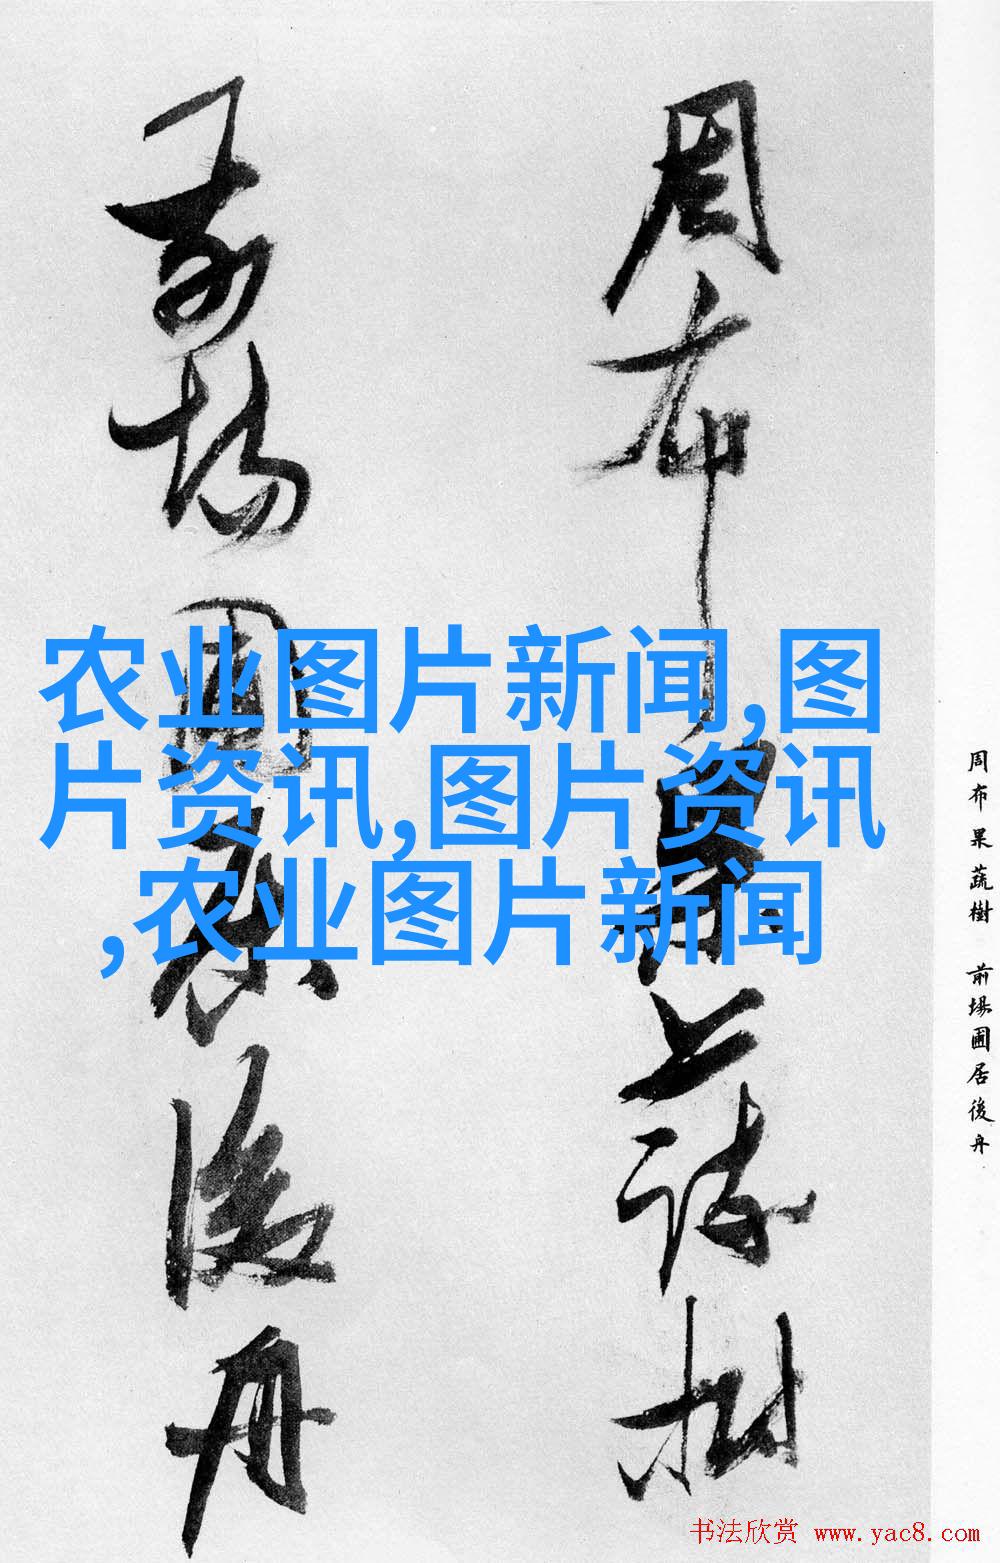 周布果蔬樹
前場圃居後舟
农业图片新闻,图
片资讯,图片资讯
,农业图片新闻
周布果蔬樹 前場圃居後舟
书法欣赏 www.yac8.com